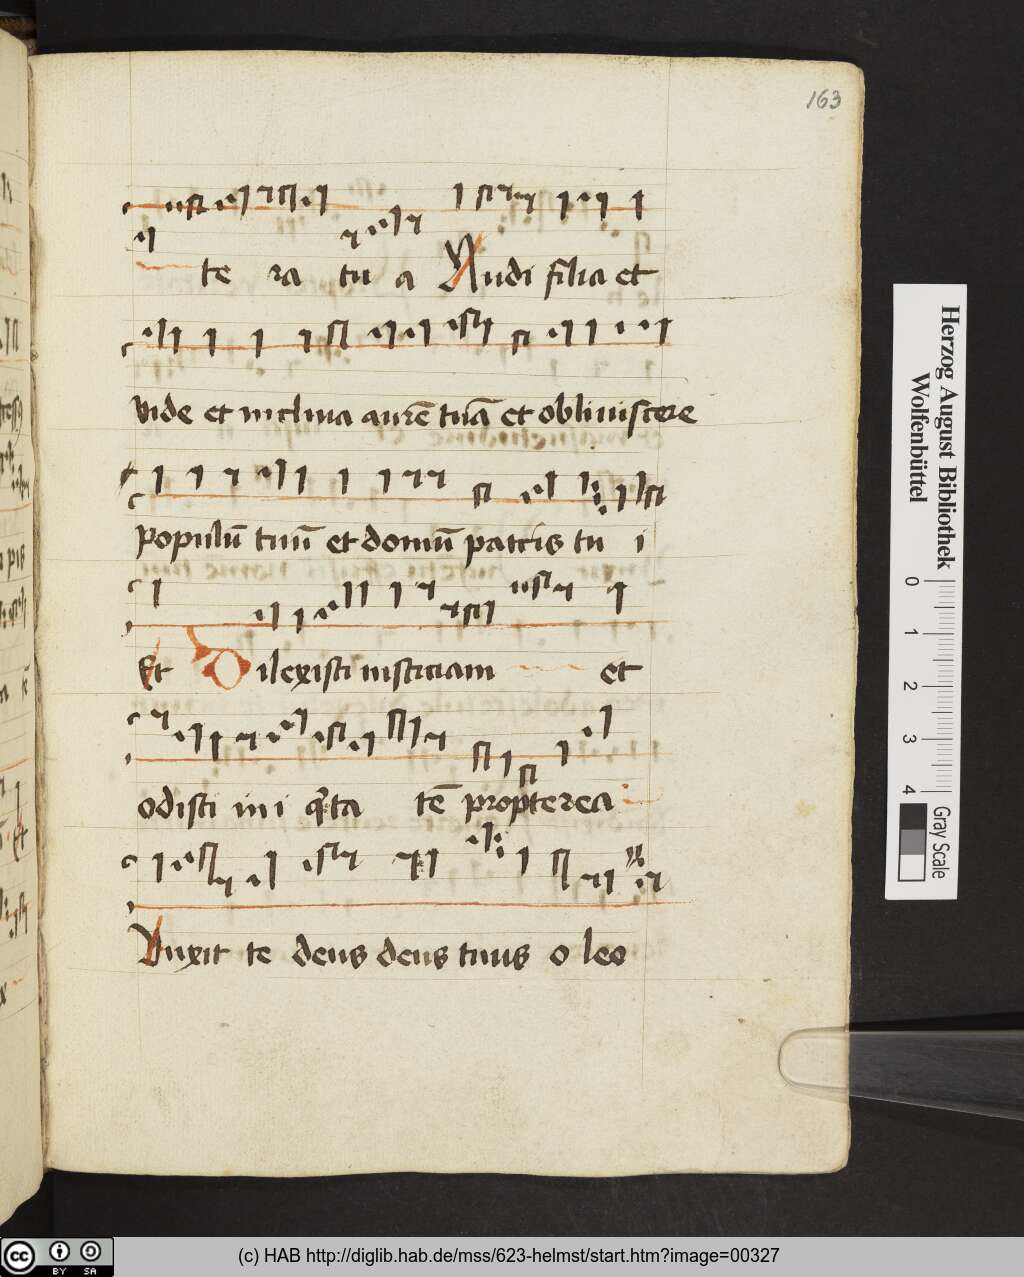 163
te ra tu a Audi filia et
vide et inclina aurē tuā et obliviscere
populū tuū et domū patris tu i
Et Dilexisti iusticiam et
odisti ini q'ta tē propterea
Vnxit te deus deus tuus o leo
Herzog August Bibliothek
Wolfenbüttel
0 1 2 3 4
Gray Scale
cc BY SA
(c) HAB http://diglib.hab.de/mss/623-helmst/start.htm?image=00327